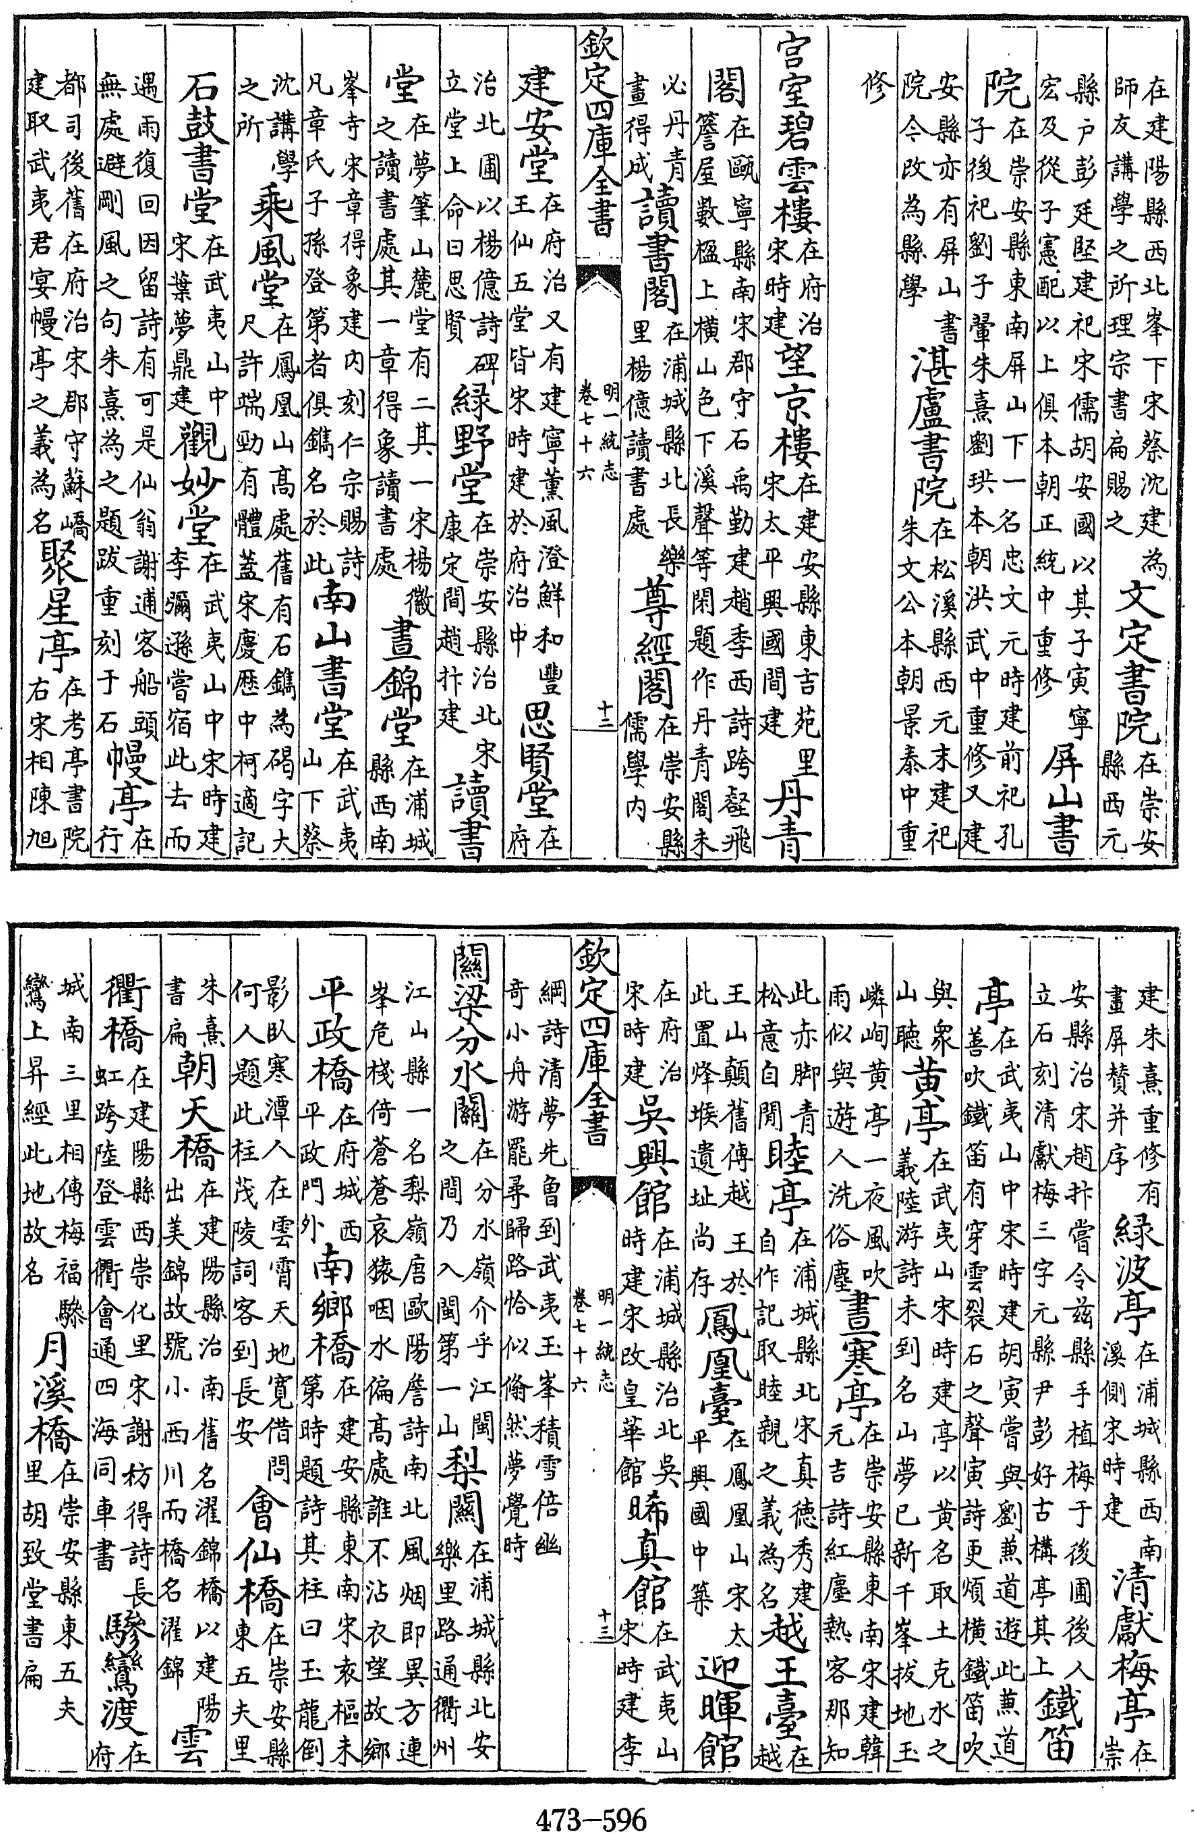 在建陽縣西北峯下宋蔡沈建為師友講學之所理宗書扁賜之文定書院在崇安縣西元
縣戸彭廷堅建祀宋儒胡安國以其子寅寧宏及從子憲配以上俱本朝正統中重修屏山書
院在崇安縣東南屏山下一名忠文元時建前祀孔子後祀劉子翬朱熹劉珙本朝洪武中重修又建
安縣亦有屏山書院今改為縣學湛盧書院在松溪縣西元末建祀朱文公本朝景泰中重
修
宫室碧雲樓在府治宋時建望京樓在建安縣東吉苑里宋太平興國間建丹青
閣在甌寧縣南宋郡守石禹勤建趙季西詩跨壑飛簷屋數楹上橫山色下溪聲等閑題作丹青閣未
必丹青畫得成讀書閣在浦城縣北長樂里楊億讀書處尊經閣在崇安縣儒學内
欽定四庫全書
明一統志
卷七十六
十二
建安堂在府治又有建寧薰風澄鮮和豐王仙五堂皆宋時建於府治中思賢堂在府
治北圃以楊億詩碑立堂上命曰思賢緑野堂在崇安縣治北宋康定間趙抃建讀書
堂在夢筆山麓堂有二其一宋楊徽之讀書處其一章得象讀書處晝錦堂在浦城縣西南
峯寺宋章得象建内刻仁宗賜詩凡章氏子孫登第者俱鐫名於此南山書堂在武夷山下蔡
沈講學之所乘風堂在鳳凰山高處舊有石鐫為碣字大尺許端勁有體蓋宋慶歴中柯適記
石鼓書堂在武夷山中宋葉夢鼎建觀妙堂在武夷山中宋時建李彌遜嘗宿此去而
遇雨復回因留詩有可是仙翁謝逋客船頭無處避剛風之句朱熹為之題跋重刻于石幔亭在行
都司後舊在府治宋郡守蘇嶠建取武夷君宴幔亭之義為名聚星亭在考亭書院右宋相陳旭
建朱熹重修有畫屏賛并序緑波亭在浦城縣西南溪側宋時建清獻梅亭在崇
安縣治宋趙抃嘗令兹縣手植梅于後圃後人立石刻清獻梅三字元縣尹彭好古構亭其上鐵笛
亭在武夷山中宋時建胡寅嘗與劉蕙道遊此蕙道善吹鐵笛有穿雲裂石之聲寅詩更煩橫鐵笛吹
與衆山聽黄亭在武夷山宋時建亭以黄名取土克水之義陸游詩未到名山夢已新千峯拔地玉
嶙峋黄亭一夜風吹雨似與遊人洗俗塵晝寒亭在崇安縣東南宋建韓元吉詩紅塵熱客那知
此赤脚青松意自閒睦亭在浦城縣北宋真德秀建自作記取睦親之義為名越王臺在越
王山顛舊傳越王於此置烽堠遺址尚存鳳凰臺在鳳凰山宋太平興國中築迎暉館
在府治宋時建吳興館在浦城縣治北吳時建宋改皇華館晞真館在武夷山宋時建李
綱詩清夢先曾到武夷玉峯積雪倍幽奇小舟游罷尋歸路恰似翛然夢覺時
欽定四庫全書
明一統志
卷七十六
十三
關梁分水關在分水嶺介乎江閩之間乃入閩第一山梨關在浦城縣北安樂里路通衢州
江山縣一名梨嶺唐歐陽詹詩南北風烟即異方連峯危棧倚蒼蒼哀猿咽水偏高處誰不沾衣望故鄉
平政橋在府城西平政門外南鄉橋在建安縣東南宋袁樞未第時題詩其柱曰玉龍倒
影臥寒潭人在雲霄天地寬借問何人題此柱茂陵詞客到長安會仙橋在崇安縣東五夫里
朱熹書扁朝天橋在建陽縣治南舊名濯錦橋以建陽出美錦故號小西川而橋名濯錦雲
衢橋在建陽縣西崇化里宋謝枋得詩長虹跨陸登雲衢會通四海同車書驂鸞渡在府
城南三里相傳梅福驂鸞上昇經此地故名月溪橋在崇安縣東五夫里胡致堂書扁
473-596